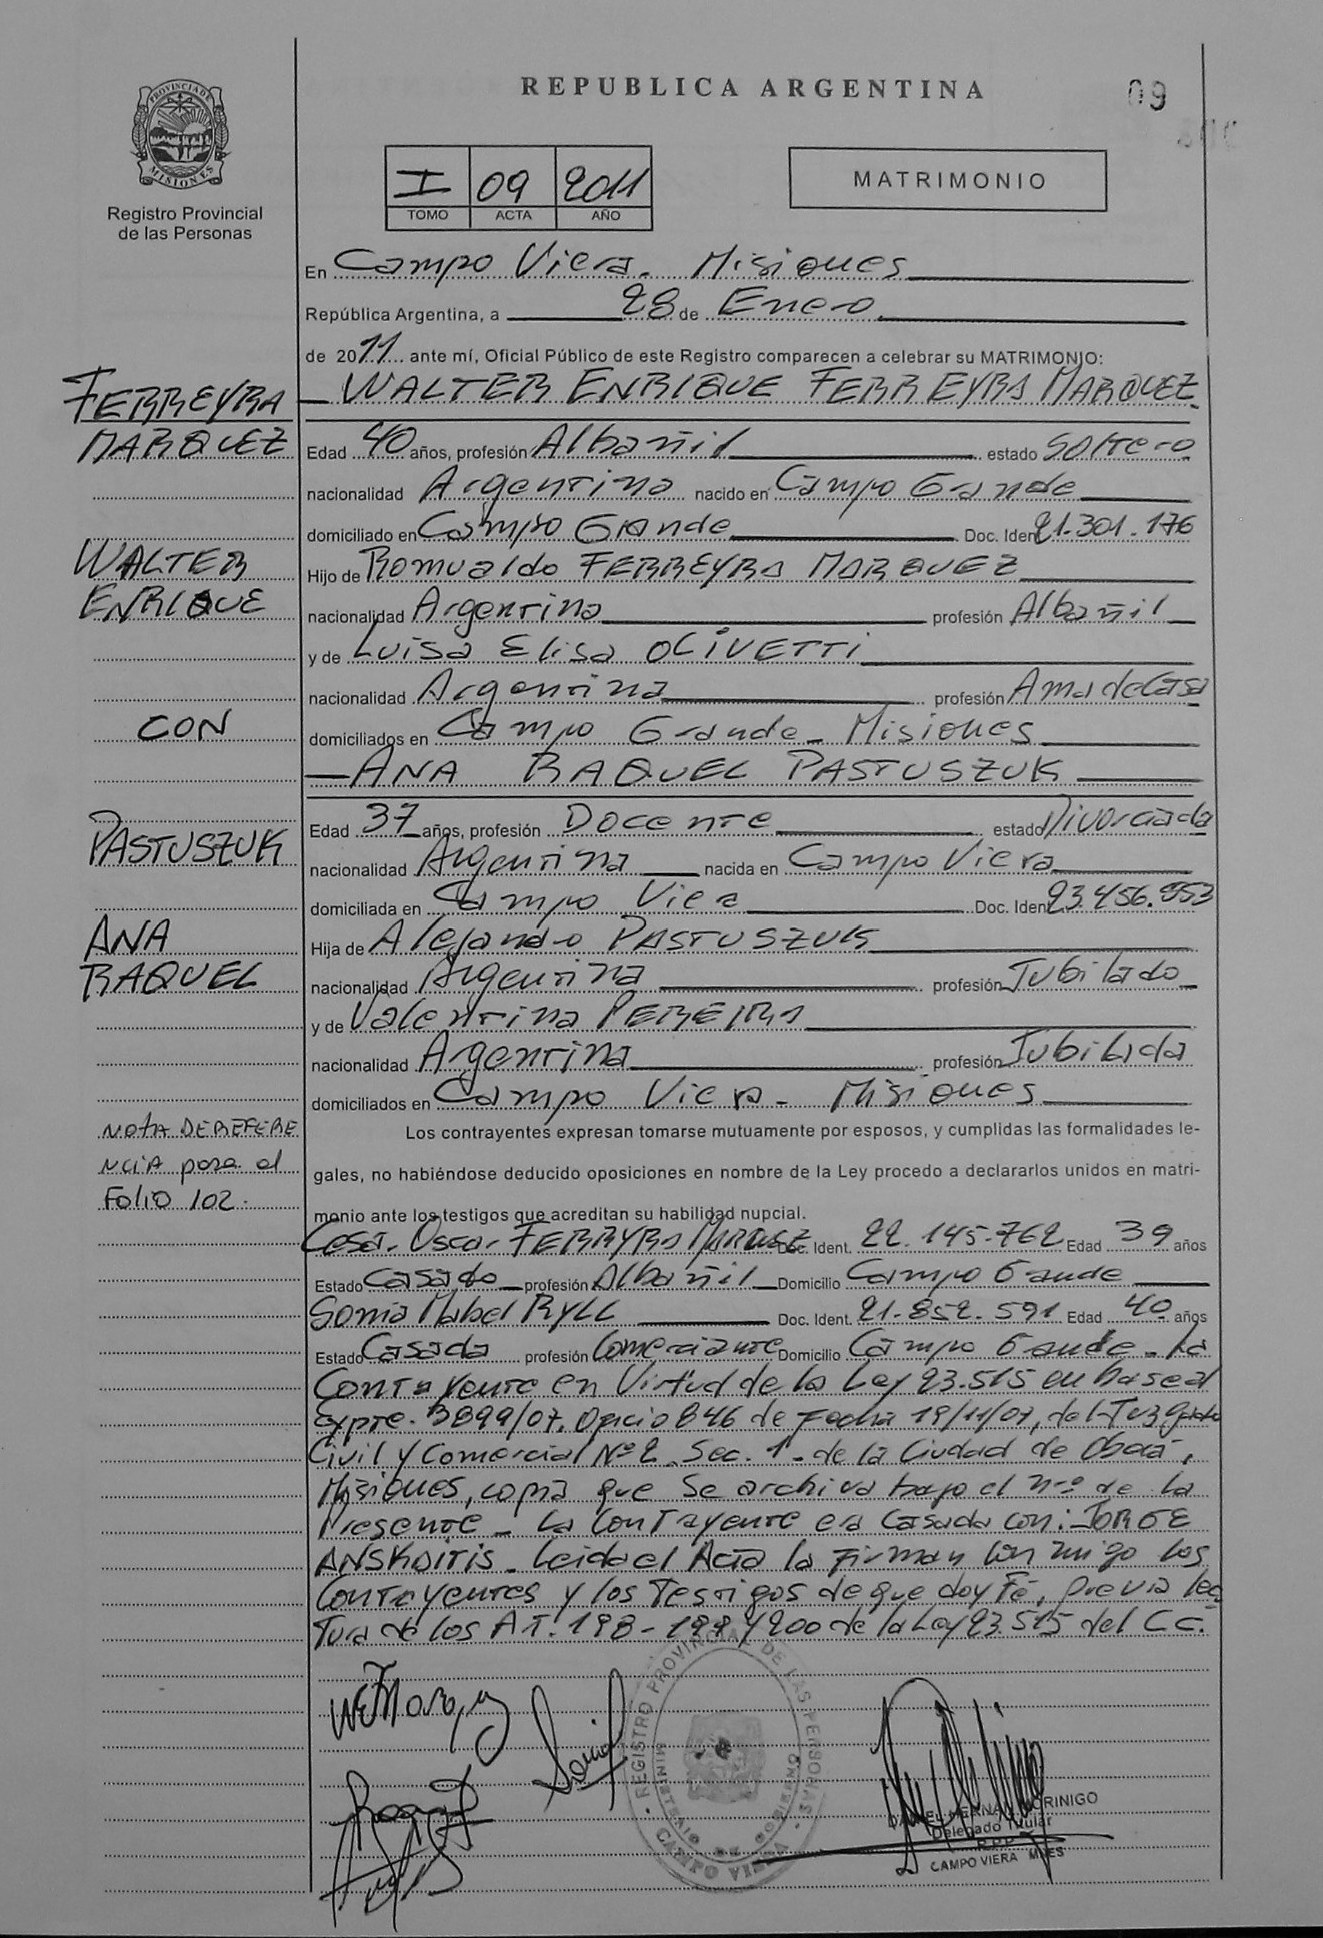 REPUBLICA ARGENTINA
09
PROVINCIA DE MISIONES
Registro Provincial
de las Personas
I 09 2011
TOMO ACTA AÑO
MATRIMONIO
En Campo Viera. Misiones
República Argentina, a 28 de Enero
de 2011 ante mí, Oficial Público de este Registro comparecen a celebrar su MATRIMONIO:
FERREYRA
MARQUEZ
WALTER
ENRIQUE
CON
PASTUSZUK
ANA
RAQUEL
NOTA DE REFERE
NCIA para el
FOLIO 102.
WALTER ENRIQUE FERREYRA MARQUEZ
Edad 40 años, profesión Albañil estado Soltero
nacionalidad Argentina nacido en Campo Grande
domiciliado en Campo Grande Doc. Ident. 21.301.176
Hijo de Romualdo FERREYRA MARQUEZ
nacionalidad Argentina profesión Albañil
y de Luisa Elisa OLIVETTI
nacionalidad Argentina profesión Ama de Casa
domiciliados en Campo Grande - Misiones
ANA RAQUEL PASTUSZUK
Edad 37 años, profesión Docente estado Divorciada
nacionalidad Argentina nacida en Campo Viera
domiciliada en Campo Viera Doc. Ident. 23.456.953
Hija de Alejandro PASTUSZUK
nacionalidad Argentina profesión Jubilado
y de Valentina PEREIRA
nacionalidad Argentina profesión Jubilada
domiciliados en Campo Viera - Misiones
Los contrayentes expresan tomarse mutuamente por esposos, y cumplidas las formalidades le-
gales, no habiéndose deducido oposiciones en nombre de la Ley procedo a declararlos unidos en matri-
monio ante los testigos que acreditan su habilidad nupcial.
Cesar Oscar FERRYRA MARQUEZ Doc. Ident. 22.145.762 Edad 39 años
Estado Casado profesión Albañil Domicilio Campo Grande
Sonia Mabel RYLL Doc. Ident. 21.852.591 Edad 40 años
Estado Casada profesión Comerciante Domicilio Campo Grande - La
Contrayente en Virtud de la Ley 23.515 en base al
Expte. 3899/07, Oficio 846 de Fecha 19/11/07, del Juzgado
Civil y Comercial Nº 2. Sec. 1 - de la Ciudad de Oberá,
Misiones, copia que Se archiva bajo el nro de la
Presente - La Contrayente era Casada con: JORGE
ANSKAITIS - Leida el Acta la Firman conmigo los
Contrayentes y los Testigos de que doy Fé, previa lec
tura de los AT. 198 - 199 y 200 de la Ley 23.515 del C.C.
REGISTRO PROVINCIAL DE LAS PERSONAS
MINISTERIO DE GOBIERNO
CAMPO VIERA
DANIEL HERNAN MORINIGO
Delegado Titular
R.P.P.
CAMPO VIERA MNES